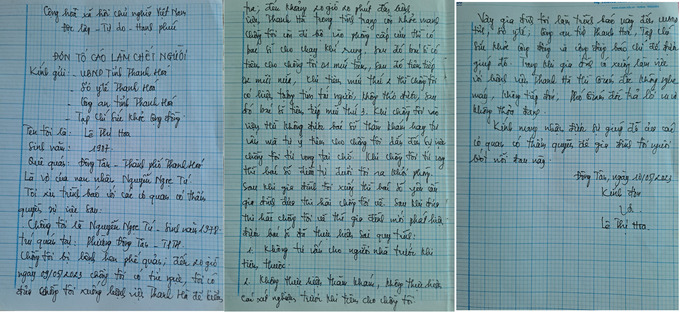 Cộng hoà xã hội chủ nghĩa Việt Nam
Độc lập - Tự do - Hạnh phúc
ĐƠN TỐ CÁO LÀM CHẾT NGƯỜI
Kính gửi: - UBND Tỉnh Thanh Hoá
- Sở y tế Thanh Hoá
- Công an tỉnh Thanh Hoá
- Tạp Chí Sức Khỏe Cộng Đồng
Tên tôi là: Lê Thị Hoa
Sinh năm: 1987
Quê quán: Đông Tân - Thành phố Thanh Hoá
Là vợ của nạn nhân Nguyễn Ngọc Tú
Tôi xin trình báo với các cơ quan có thẩm
quyền sự việc sau:
Chồng tôi là Nguyễn Ngọc Tú - Sinh năm 1978
Trú quán tại: Phường Đông Tân - TPTH.
Chồng tôi bị bệnh hen phế quản, đến 20 giờ
ngày 09/05/2023 chồng tôi có mệt người, tôi có
đưa chồng tôi xuống bệnh viện Thanh Hà để kiểm
tra, đến khoảng 20 giờ 20 phút đến bệnh
viện Thanh Hà trong tình trạng còn khỏe mạnh
Chồng tôi còn đi bộ vào phòng cấp cứu thì có
bác sĩ cho chạy khí dung, sau đó bác sĩ có
tiêm cho chồng tôi 01 mũi tiêm, sau đó tiêm tiếp
01 mũi nữa. Khi tiêm mũi thứ 2 thì chồng tôi
có biểu hiện tím tái người, không thở được, sau
đó bác sĩ tiêm tiếp mũi thứ 3. Khi chồng tôi vào
viện thì không được bác sĩ thăm khám hay tư
vấn mà tự ý tiêm cho chồng tôi dẫn đến sự việc
chồng tôi tử vong tại chỗ. Khi chồng tôi tử vong
thì bác sĩ điều tôi ra khỏi phòng.
Sau khi gia đình tôi xuống thì bác sĩ yêu cầu
gia đình đưa thi hài chồng tôi về. Sau khi đưa
thi hài chồng tôi về thì gia đình mới phát hiện
được bác sĩ đã thực hiện sai quy trình:
1. Không tư vấn cho người nhà trước khi
tiêm thuốc.
2. Không thực hiện thăm khám, không thực hiện
các xét nghiệm trước khi tiêm cho chồng tôi
Vậy gia đình tôi làm trình báo này đến UBND
tỉnh, Sở y tế, Công an tỉnh Thanh Hoá, Tạp chí
Sức khỏe Cộng đồng và cộng đồng báo chí để được
giúp đỡ. Trong khi gia đình có xuống làm việc
với bệnh viện Thanh Hà thì Giám đốc không nghe
máy, không tiếp đón, Phó Giám đốc trả lời
không thoả đáng.
Kính mong nhận được sự giúp đỡ của các
cơ quan có thẩm quyền để gia đình tôi nguôi
bớt nỗi đau này.
Đông Tân, ngày 10/05/2023
Kính đơn
Vợ
Lê Thị Hoa